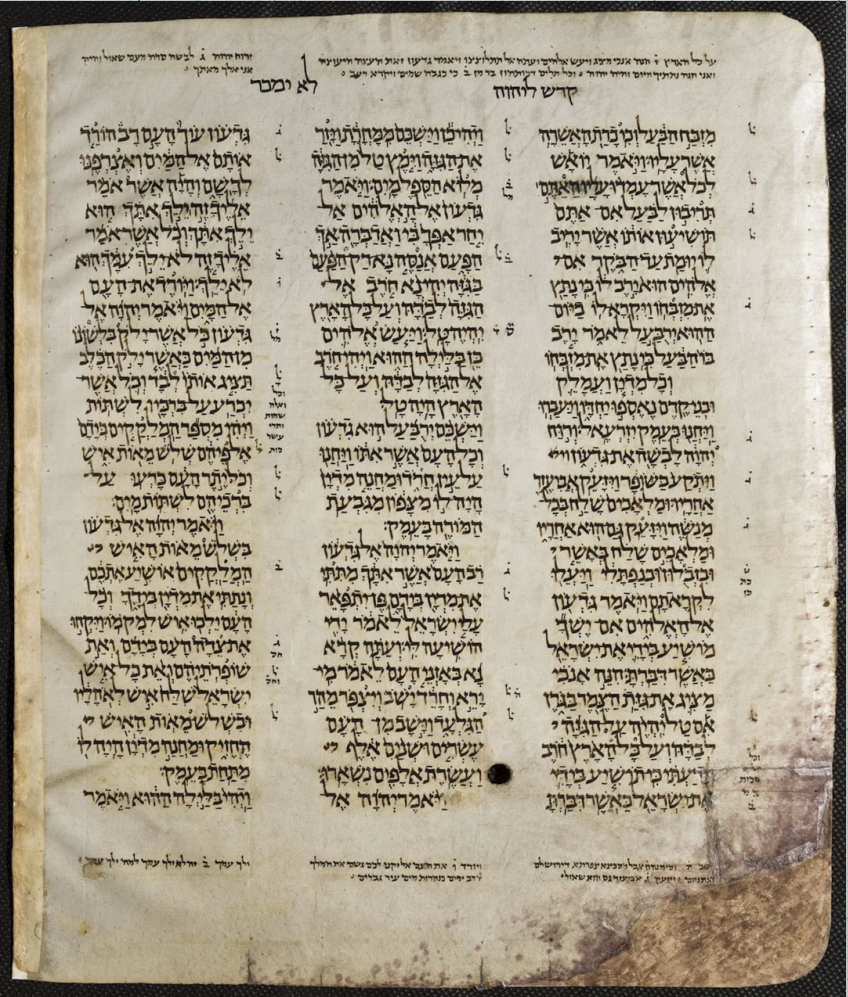 קדש ליהוה לא ימכר
מזבח הבעל וכי כרת האשרה
אשר עליו ויאמר יואש
לכל אשר עמדו עליו האתם
תריבון לבעל אם אתם
תושיעון אותו אשר יריב
לו יומת עד הבקר אם
אלהים הוא ירב לו כי נתץ
את מזבחו ויקרא לו ביום
ההוא ירבעל לאמר ירב
בו הבעל כי נתץ את מזבחו
וכל מדין ועמלק
ובני קדם נאספו יחדו ויעברו
ויחנו בעמק יזרעאל ורוח
יהוה לבשה את גדעון
ויתקע בשופר ויזעק אביעזר
אחריו ומלאכים שלח בכל
מנשה ויזעק גם הוא אחריו
ומלאכים שלח באשר
ובזבלון ובנפתלי ויעלו
לקראתם ויאמר גדעון
אל האלהים אם ישך
מושיע בידי את ישראל
כאשר דברת הנה אנכי
מציג את גזת הצמר בגרן
אם טל יהיה על הגזה
לבדה ועל כל הארץ חרב
וידעתי כי תושיע בידי
את ישראל כאשר דברת
ויהי כן וישכם ממחרת ויזר
את הגזה וימץ טל מן הגזה
מלוא הספל מים ויאמר
גדעון אל האלהים אל
יחר אפך בי ואדברה אך
הפעם אנסה נא רק הפעם
בגזה יהי נא חרב אל
הגזה לבדה ועל כל הארץ
יהיה טל ויעש אלהים
כן בלילה ההוא ויהי חרב
אל הגזה לבדה ועל כל
הארץ היה טל׃
וישכם ירבעל הוא גדעון
וכל העם אשר אתו ויחנו
על עין חרד ומחנה מדין
היה לו מצפון מגבעת
המורה בעמק׃
ויאמר יהוה אל גדעון
רב העם אשר אתך מתתי
את מדין בידם פן יתפאר
עלי ישראל לאמר ידי
הושיעה לי ועתה קרא
נא באזני העם לאמר מי
ירא וחרד ישב ויצפר מהר
הגלעד וישב מן העם
עשרים ושנים אלף
ועשרת אלפים נשארו׃
ויאמר יהוה אל
גדעון עוד העם רב הורד
אותם אל המים ואצרפנו
לך שם והיה אשר אמר
אליך זה ילך אתך הוא
ילך אתך וכל אשר אמר
אליך זה לא ילך עמך הוא
לא ילך ויורד את העם
אל המים ויאמר יהוה אל
גדעון כל אשר ילק בלשונו
מן המים כאשר ילק הכלב
תציג אותו לבד וכל אשר
יכרע על ברכיו לשתות
ויהי מספר המלקקים בידם
אל פיהם שלש מאות איש
וכל יתר העם כרעו על
ברכיהם לשתות מים׃
ויאמר יהוה אל גדעון
בשלש מאות האיש
המלקקים אושיע אתכם
ונתתי את מדין בידך וכל
העם ילכו איש למקמו ויקחו
את צדה העם בידם ואת
שופרתיהם ואת כל איש
ישראל שלח איש לאהליו
ובשלש מאות האיש
החזיק ומחנה מדין היה לו
מתחת בעמק׃
ויהי בלילה ההוא ויאמר